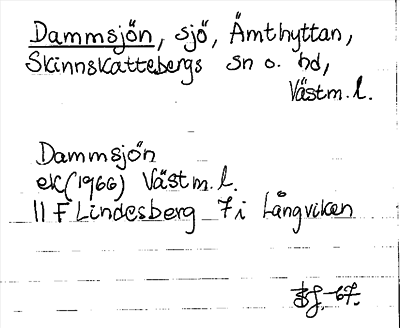 Dammsjön, sjö, Ämthyttan,
Skinnskattebergs sn o. hd,
Västm. l.
Dammsjön
ek (1966) Västm. l.
11 F Lindesberg 7 i Långviken
-67.